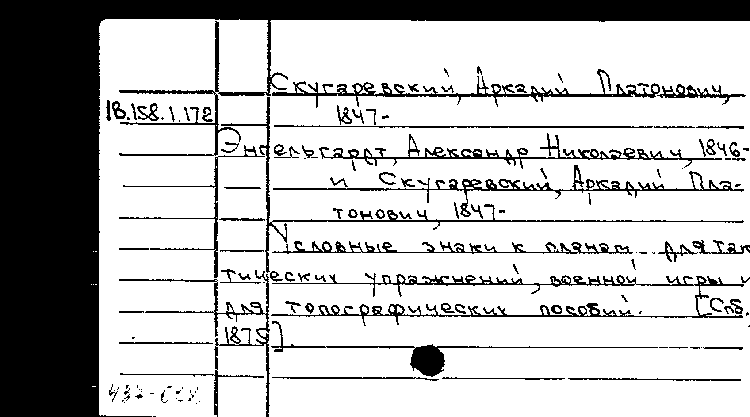 Скугаревский, Аркадий Платонович,
18.158.1.172
1847-
Энгельгардт, Александр Николаевич, 1846-
и Скугаревский, Аркадий Пла-
тонович, 1847-
Условные знаки к планам для так
тических упражнений, военной игры и
для топографических пособий. [Спб.,
1875].